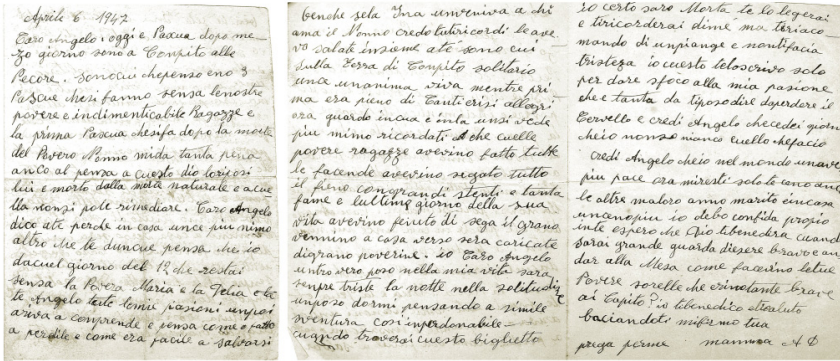 Aprile 6 1947
Caro Angelo, oggi e Pascua dopo me-
zo giorno sono a Conpito alle
Pecore. Sonocui chepenso eno 3
Pascue chesi fanno sensa lenostre
povere e indimenticabile Ragazze e
la prima Pascua chesifa dopo la morte
del Povero Nonno mida tanta pena
anco al pensa a cuesto dio loriposi
lui e morto dalla morte naturale e acue
lla nonsi pote rimediare. Caro Angelo
dico ate perche in casa unce piu nimo
altro che te dunque pensa che io
dacuel giorno del 1º che restai
sensa la Povera Maria e la Felia e
te Angelo tutte lemie pasioni unpoi
ariva a conprende e pensa come o fatto
a perdile e come era facile a salvarsi
benche sela Ina unveniva a chi
ama il Nonno credo tutiricordi leave
vo salvate insieme ate sono cui
sulla Terra di Conpito solitario
unce unanima viva mentre pri
ma era pieno di Tanti crisi allagri
ora quando incua e inla unsi vede
piu nimo ricordati A che cuelle
povere ragazze avevino fatto tutte
le facende avevino segato tutto
il fieno congrandi stenti e tanta
fame e lultimo giorno della sua
vita avevino finuto di sega il grano
vennino a casa verso sera caricate
digrano poverine. io Caro Angelo
untro vero poso nella mia vita sara
senpre triste la notte nella solitudine
unposo dormi pensando a simile
sventura cosi inperdonabile
cuando troverai cuesto biglietto
ro certo saro Morta te lo legerai
e tiricorderai dime ma teriaco
mando di unpiange e nontifacia
tristeza io cuesto teloscrivo solo
per dare sfoco alla mia pasione
che e tanta da tiposo dire daperdere il
Cervello e credi Angelo checedei giorni
cheio nonso nianco cuello chefacio
credi Angelo cheio nel mondo unave
piu pace ora miresti solo te
le altre maloro anno marito eincasa
uncenopiu io debo confida propio
inte espero che Dio tibenedira cuando
sarai grande guarda diesere bravo e an
dar alla Mesa come facevino letue
Povere sorelle che erinotante brave
ai Capito? io tibenedico etosaluto
baciandoti mifirmo tua
prega perme mamma A D